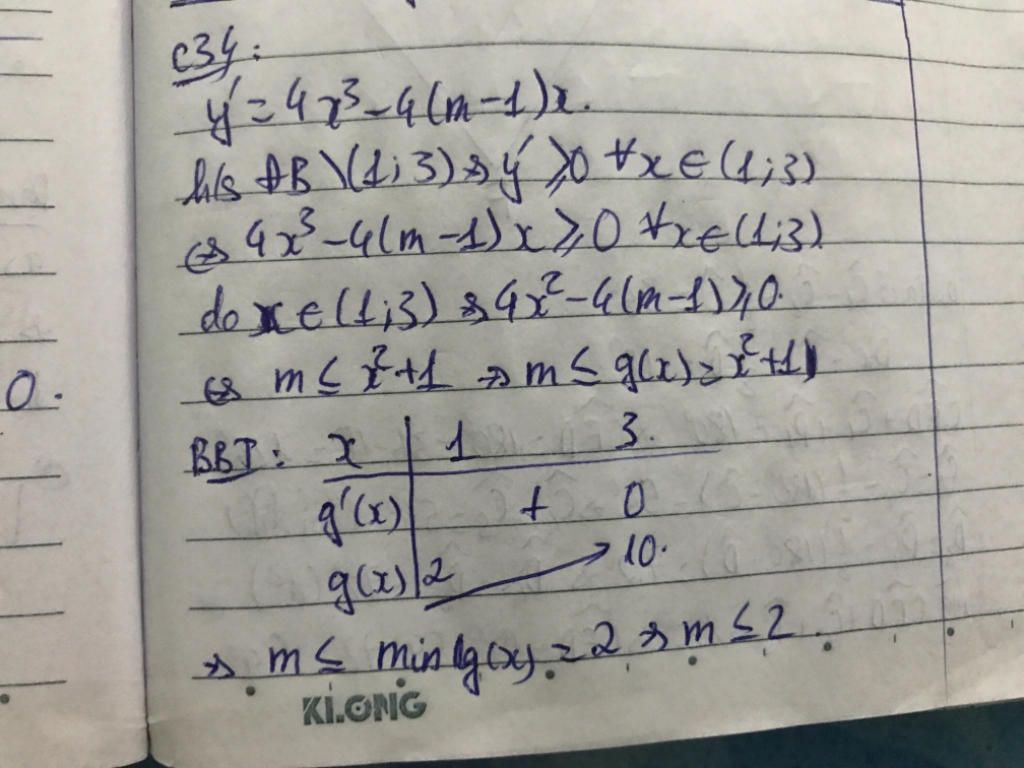 C34:
y' = 4x³ - 4(m-1)x.
h/s ĐB \ (1;3) => y' ≥ 0 ∀x ∈ (1;3)
<=> 4x³ - 4(m-1)x ≥ 0 ∀x ∈ (1;3)
do x ∈ (1;3) => 4x² - 4(m-1) ≥ 0.
<=> m ≤ x² + 1 => m ≤ g(x) = x² + 1
0.
BBT: x | 1 3.
g'(x) | + 0
g(x) | 2 → 10.
=> m ≤ min g(x) = 2 => m ≤ 2.
KLONG